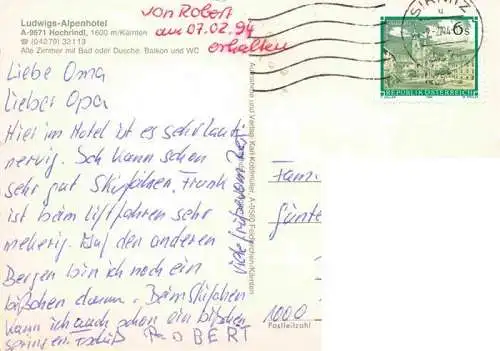 Ludwigs-Alpenhotel
A-9571 Hochrindl, 1600 m/Kärnten
☎ (04279) 33113
Alle Zimmer mit Bad oder Dusche, Balkon und WC
von Robert
am 07.02.94
erhalten
SIRNITZ
6 s
REPUBLIK ÖSTERREICH
Liebe Oma
Lieber Opa
Hier im Hotel ist es sehr lausi
nervig. Ich kann schon
sehr gut Skifahren. Frank
ist beim liftfahren sehr
mekerig. Auf den anderen
Bergen bin ich noch ein
bißchen dumm. Beim skifahen
kann ich auch schon ein bißchen
springen. Tschüß ROBERT
viele
Karl A-9560 Feldkirchen-Kärnten
Fam
Günte
1000
Postleitzahl